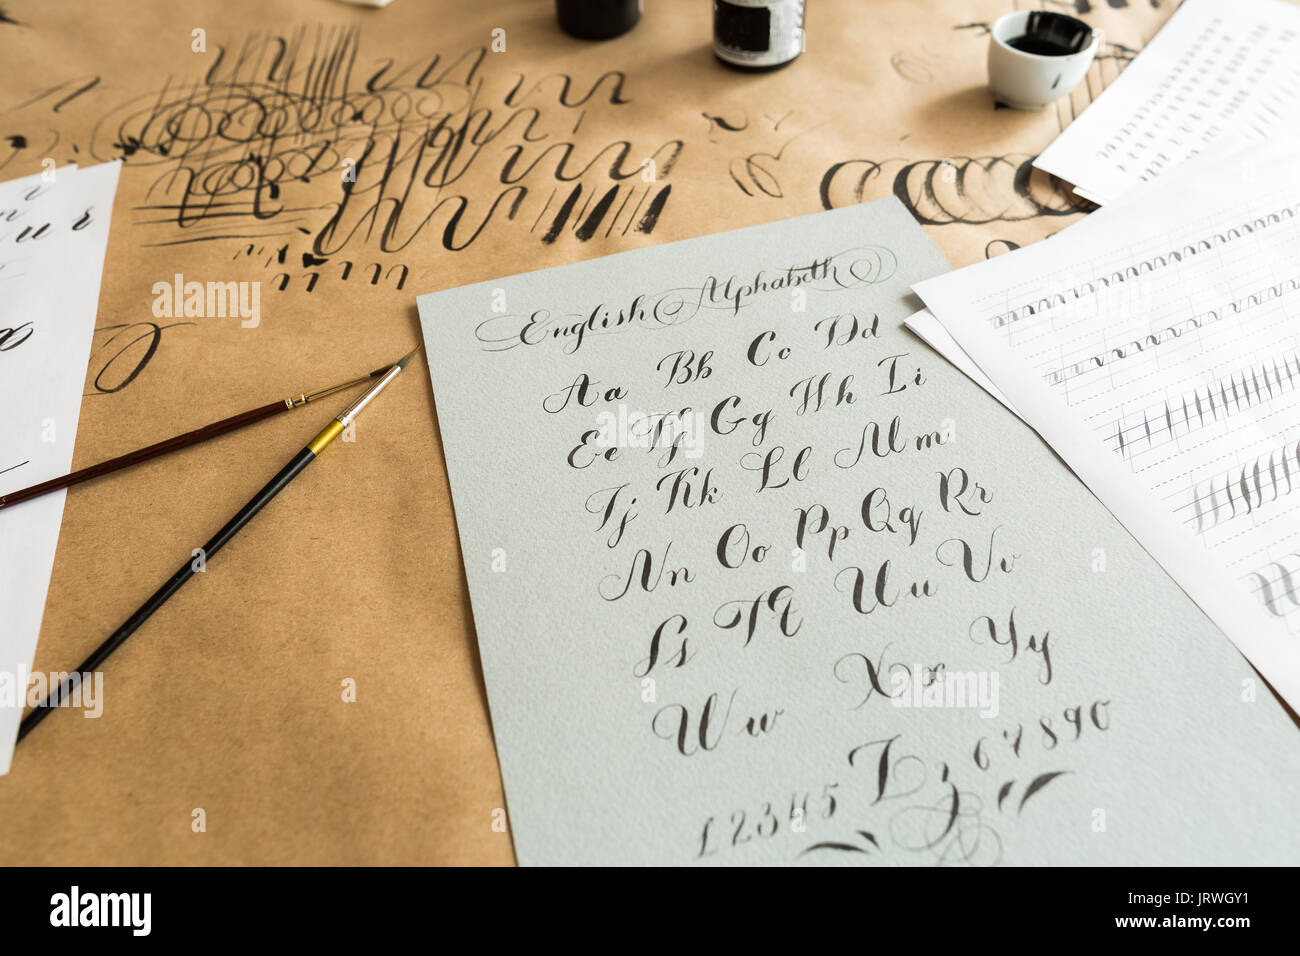 English Alphabeth
Aa Bb Cc Dd
Ee Ff Gg Hh Ii
Jj Kk Ll Mm
Nn Oo Pp Qq Rr
Ss Tt Uu Vv
Ww Xx Yy
12345 Zz 67890
alamy
Image ID: JRWGY1
www.alamy.com